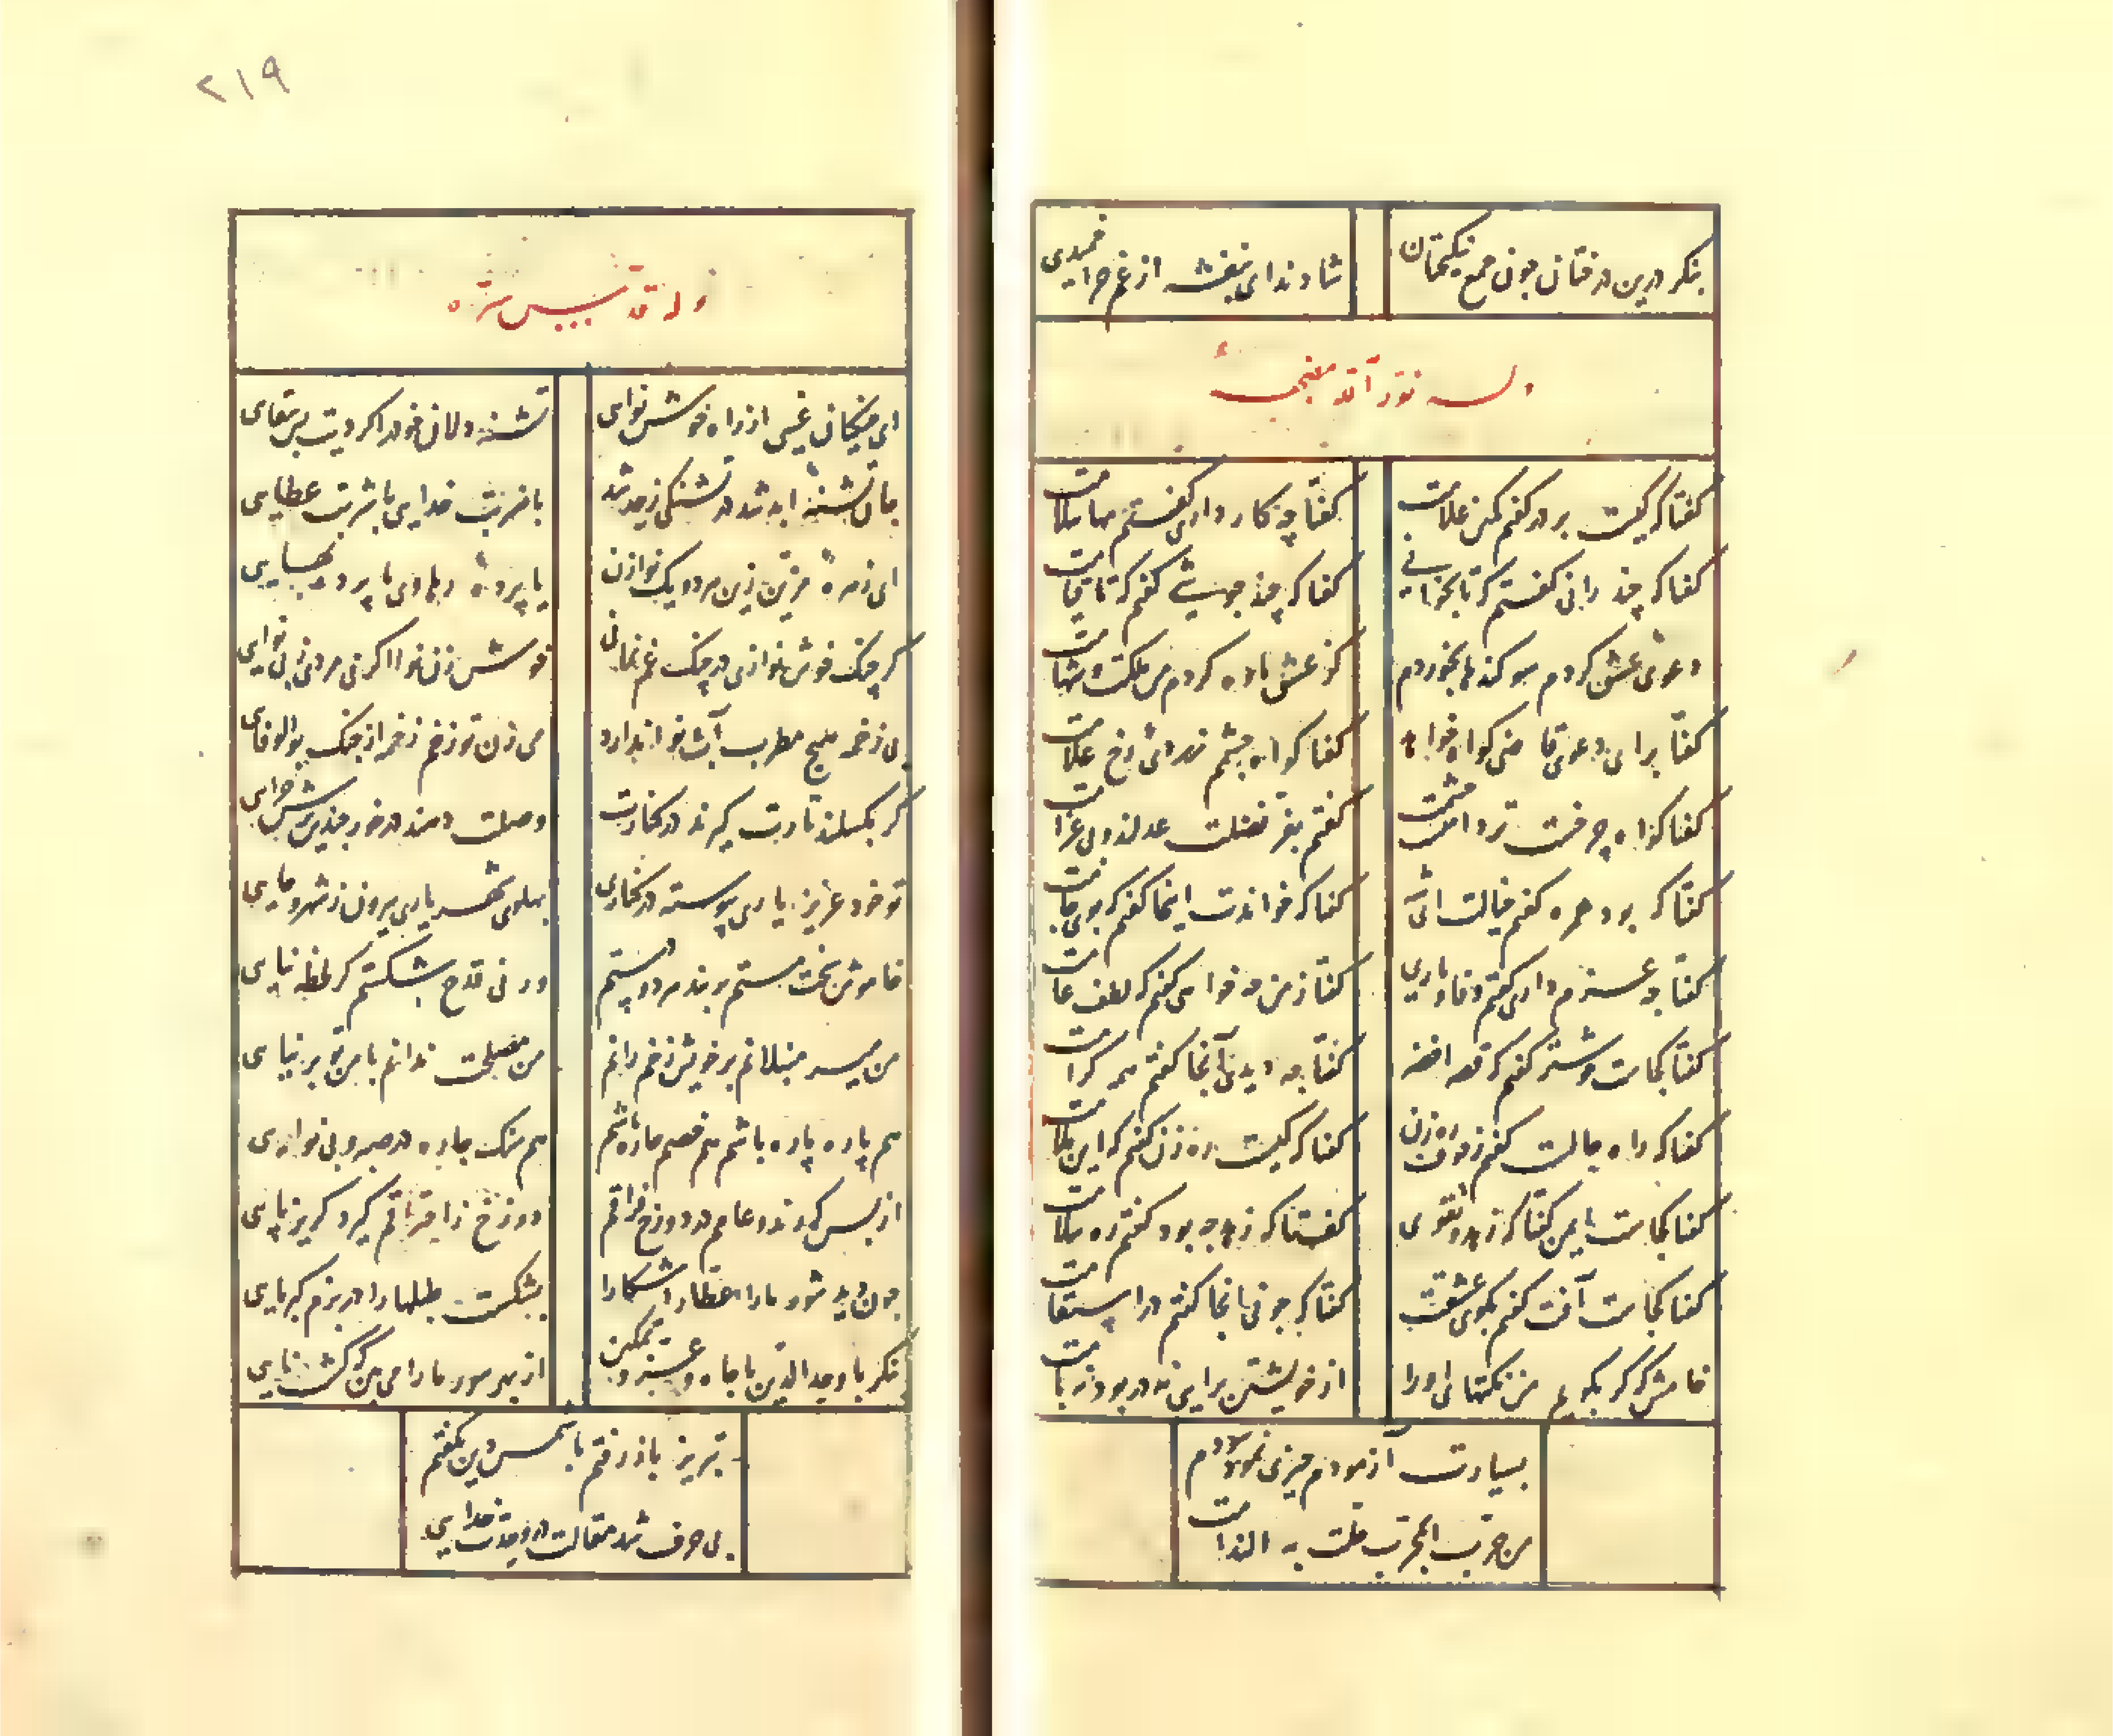 بنکر درین درختان چون جمع نیکبختان
شادند ای بنفشه از غم چرا خمیدی
وله نور الله مضجعه
کفتا که کیست بر در کفتم کمین غلامت
کفتا چه کار داری کفتم مها سلامت
کفتا که چند رانی کفتم که تا بخوانی
کفتا که چند جوشی کفتم که تا قیامت
دعوی عشق کردم سوکندها بخوردم
کز عشق یاوه کردم من ملکت و شهامت
کفتا برای دعوی قاضی کواه خواهد
کفتا کواه چشمم زردی رخ علامت
کفتا کواه جرحست تر دامنست چشمت
کفتم بفر عدلت عدلند و بی غرامت
کفتا که بود همره کفتم خیالت ای شه
کفتا که خواندت اینجا کفتم که بوی جامت
کفتا چه عزم داری کفتم وفا و یاری
کفتا ز من چه خواهی کفتم که لطف عامت
کفتا کجاست خوشتر کفتم که قصر قیصر
کفتا چه دیدی آنجا کفتم همه کرامت
کفتا که راه خالیست کفتم ز خوف رهزن
کفتا که کیست رهزن کفتم که این ملامت
کفتا کجاست ایمن کفتا که زهد و تقوی
کفتا که زهد چه بود کفتم ره سلامت
کفتا کجاست آفت کفتم بکوی عشقت
کفتا که چونی آنجا کفتم در استقامت
خامش که کر بکویم من نکتهای او را
از خویشتن برایی نه در بود نه بامت
بسیارت آزمودم چیزی نبود سودم
من جرب المجرب حلت به الندامت
۲۱۹
وله قدس سره
ای خیکانی غیبی از راه خوش نوایی
تشنه دلان خود را کردیت بس سقایی
جان تشنهٔ ابد شد در تشنکی ز حد شد
یا ضربت خدایی یا شربت عطایی
ای زهرهٔ مزین زین هر دو یک نوا زن
یا پردهٔ رهاوی یا پردهٔ رهایی
کر چنک خوش نوازی در چنک غم نمانی
خوش زن نوا اکر نی مردی ز بی نوایی
بی زخمه هیچ مطرب آبش نوا ندارد
می زن تو زخم زخمه از چنک بوالوفایی
کر بکسلند تارت کیرند در کنارت
وصلت دهند در خور چندین ترش چرایی
تو خود عزیز یاری پیوسته در کناری
پهلوی شهریاری بیرون ز شهر و جایی
خاموش سخت مستم بربند هر دو دستم
ور نی قدح شکستم کر لحظهٔ نیایی
من پیر منبلانم بر خویش زخم رانم
من مصلحت ندانم با من تو برنیایی
هم پاره پاره باشم هم خصم چاره باشم
هم سنک خاره در صبر و بی نوایی
از بس که تند و عاقم در دوزخ فراقم
دوزخ ز احتراقم کیرد کریزپایی
چون دید شور ما را عطار آشکارا
بشکست طبلها را در بزم کبریایی
بنکر باوحد الدین با جاه و عز و تمکین
تبریز باز رفتم با شمس دین بکفتم
بی حرف شد مقالت در وحدت خدایی